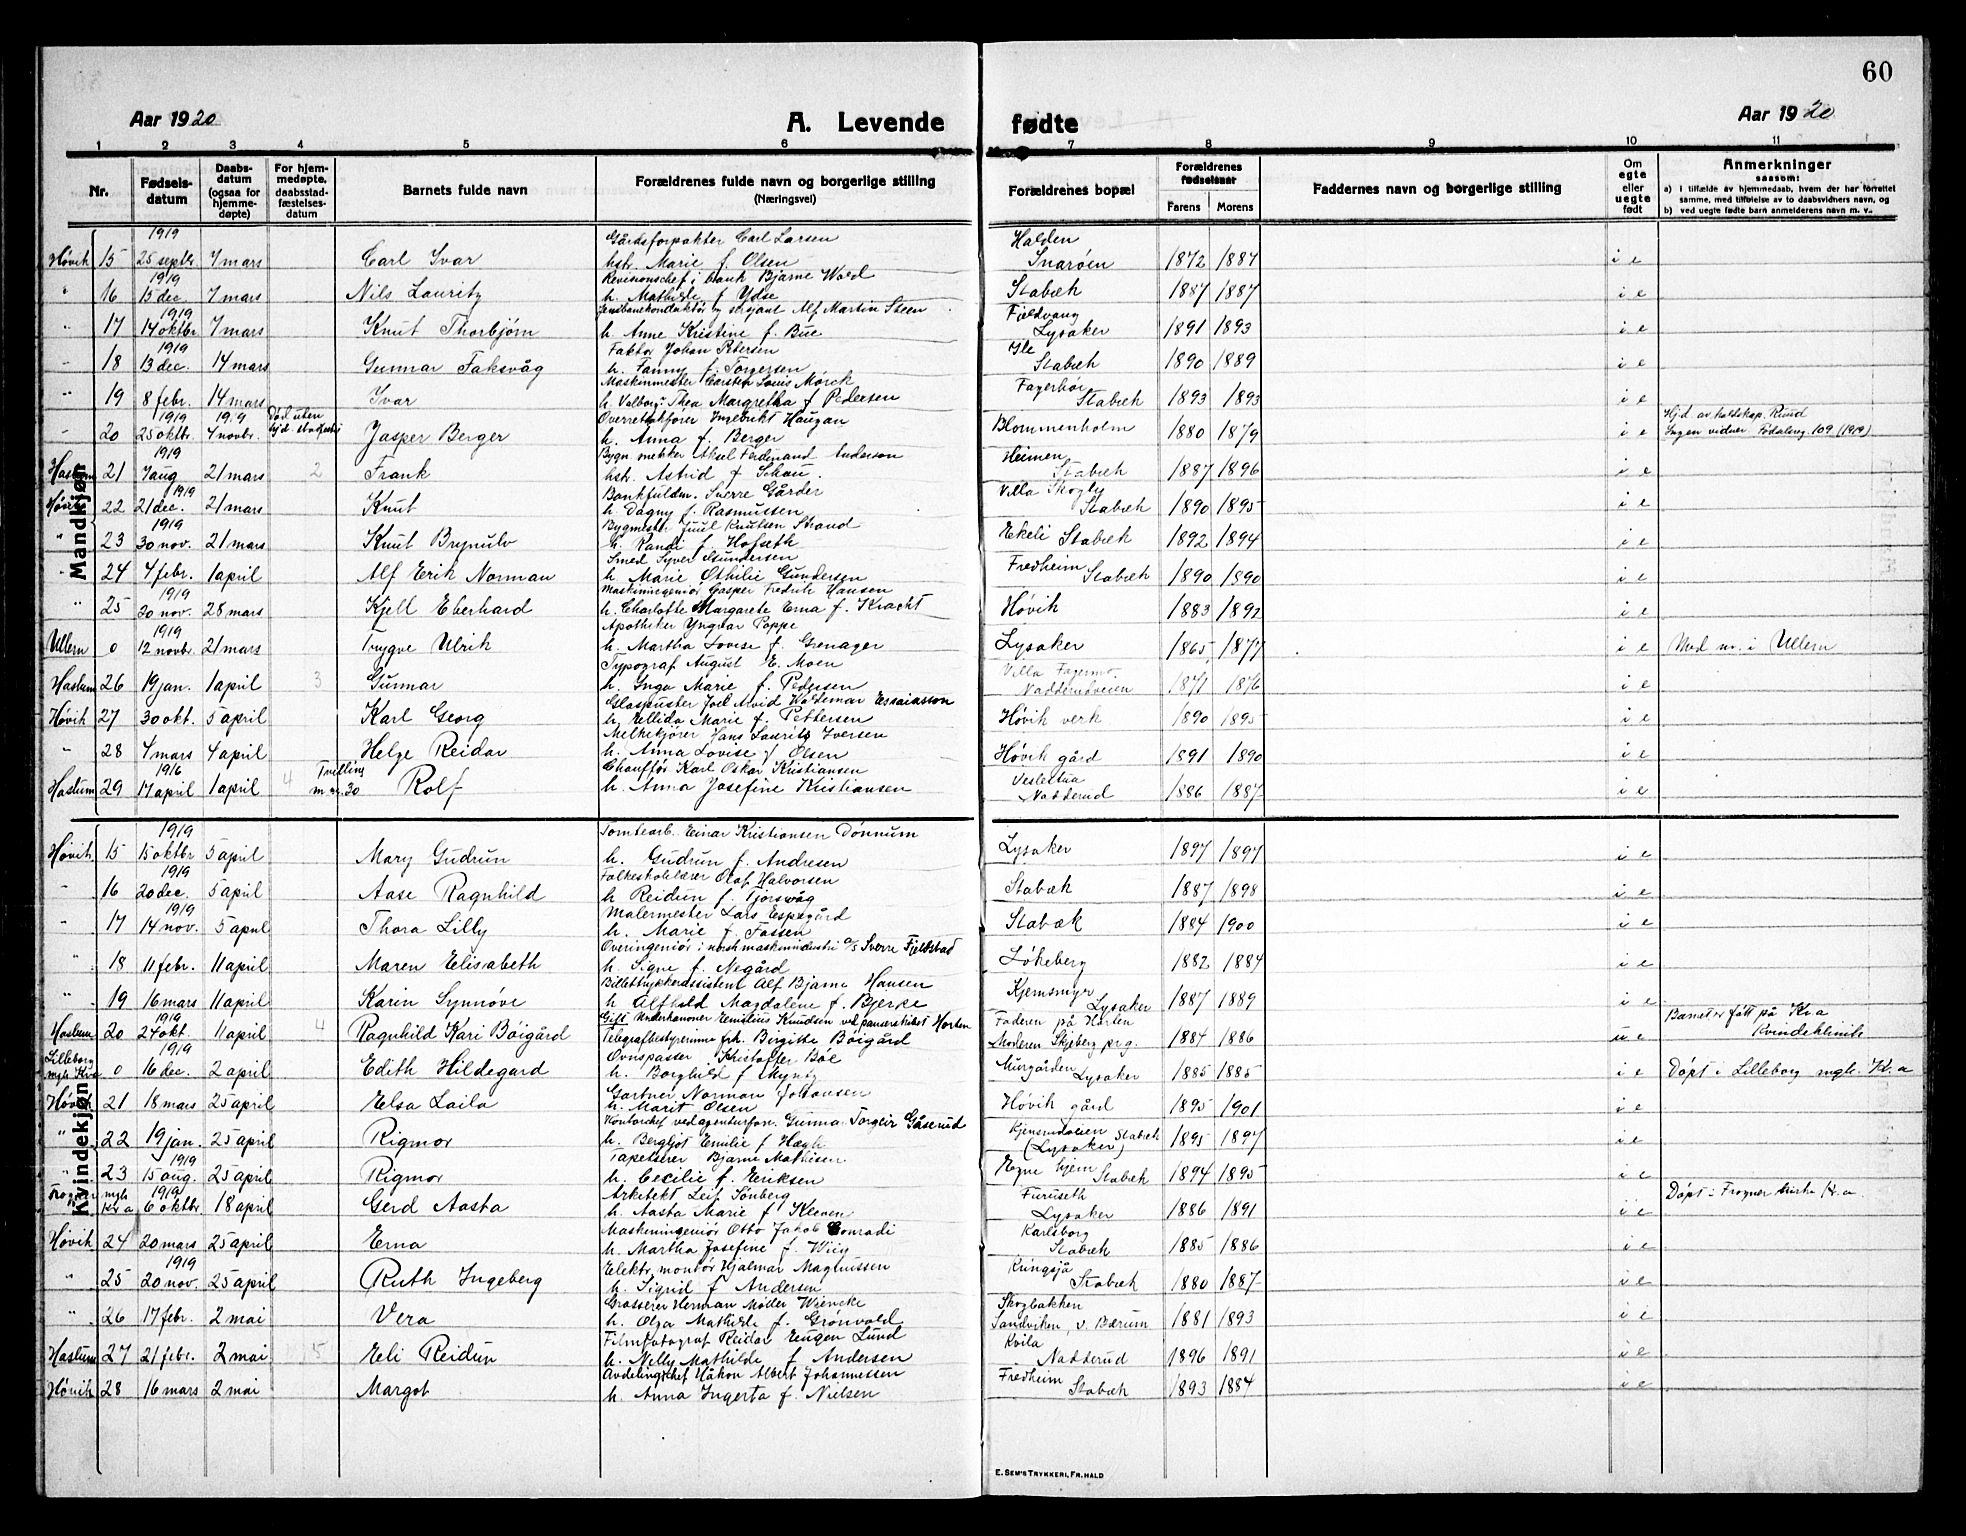 60
Aar 1920
A. Levende
fødte
Aar 1920
1 2 3 4 5 6 7 8 9 10 11
Nr.
Fødsels-datum
Daabs-datum (ogsaa for hjemme-døpte)
For hjem-medøpte, daabsstad-fæstelses-datum
Barnets fulde navn
Forældrenes fulde navn og borgerlige stilling (Næringsvei)
Forældrenes bopæl
Forældrenes fødselsaar
Farens Morens
Faddernes navn og borgerlige stilling
Om egte eller uegte født
Anmerkninger
saasom:
a) I tilfælde av hjemmedaab, hvem der har forrettet samme, med tilføielse av to daabsvidners navn, og
b) ved uegte fødte barn anmelderens navn m. v.
Mandkjøn
1919 Gårdsforpakter Carl Larsen Halden
Høvik 15 25 septr 7 mars Carl Ivar hstr. Marie f. Olsen Snarøen 1872 1887 i e
1919 Revisionschef i bank Bjarne Wold
" 16 15 dec. 7 mars Nils Lauritz h. Mathilde f. Ydse Stabæk 1887 1887 i e
1919 Jernbanekonduktør og serjant Alf Martin Steen Fjeldvang
" 17 14 oktbr 7 mars Knut Thorbjørn h. Anne Kristine f. Bue Lysaker 1891 1893 i e
1919 Faktor Johan Petersen Ile
" 18 13 dec. 14 mars Gunnar Faksvåg h. Fanny f. Torgersen Stabæk 1890 1889 i e
Maskinmester Carsten Louis Mørck Fagerhøi
" 19 8 febr. 14 mars Ivar h. Valborg Thea Margretha f. Pedersen Stabæk 1893 1893 i e
1919 19.9 Død uten Overretssakfører Ingebrikt Haugan Hjd. av sokkap. Ruud
" 20 25 oktbr. 4 novbr. Jasper Berger h. Anna f. Berger Blommenholm 1880 1879 i e Ingen vidner Fødselreg. 109 (1919)
1919 Bygn. snekker Aksel Ferdinand Anderson Heimen
Haslum 21 7 aug 21 mars 2 Frank hstr. Astrid f. Schou Stabæk 1887 1896 i e
1919 Bankfuldm. Sverre Gårder Villa Skogly
Høvik 22 21 dec. 21 mars Knut h. Dagny f. Rasmussen Stabæk 1890 1895 i e
1919 Bygmester Juul Knutsen Strand
" 23 30 nov. 21 mars Knut Brynulv h. Randi f. Hofseth Ekeli Stabæk 1892 1894 i e
Smed Syver Gundersen Fredheim
" 24 4 febr. 1 april Alf Erik Norman h. Marie Othilie Gundersen Stabæk 1890 1890 i e
1919 Maskiningeniør Casper Fredrik Hansen
" 25 20 nov. 28 mars Kjell Eberhard h. Charlotte Margarete Erna f. Kracht Høvik 1883 1892 i e
1919 Apotheker Yngvar Poppe
Ullern 0 12 novbr. 21 mars Trygve Ulrik h. Martha Lovise f. Grenager Lysaker 1865 1877 i e Med nr. i Ullern
Typograf August E. Moen Villa Fagermo
Haslum 26 19 jan. 1 april 3 Gunnar h. Inga Marie f. Pedersen Nadderudveien 1871 1876 i e
Glaspuster Joel Arvid Waldemar Essaiasson
Høvik 27 30 okt. 5 april Karl Georg h. Ellida Marie f. Pettersen Høvik verk 1890 1895 i e
Melkekjører Hans Lauritz Iversen
" 28 4 mars 4 april Helge Reidar h. Anna Lovise f. Olsen Høvik gård 1891 1890 i e
1916 Tvilling Chauffør Karl Oskar Kristiansen Veslestua
Haslum 29 17 april 1 april 4 m nr. 30 Rolf h. Anna Josefine Kristiansen Nadderud 1886 1887 i e
Kvindekjøn
1919 Tomtearb. Einar Kristiansen Dønnum
Høvik 15 15 oktbr 5 april Mary Gudrun h. Gudrun f. Andresen Lysaker 1897 1897 i e
1919 Folkeskolelærer Olaf Halvorsen
" 16 20 dec. 5 april Aase Ragnhild h Reidun f. Tjorsvåg Stabæk 1887 1898 i e
1919 Malermester Lars Espegård
" 17 14 nov. 5 april Thora Lilly h. Marie f. Fossen Stabæk 1884 1900 i e
Overingeniør i norsk maskinindustri A/S Sverre Fjeldstad
" 18 11 febr. 11 april Maren Elisabeth h. Signe f. Negård Løkeberg 1882 1884 i e
Billettrykkerassistent Alf Bjarne Hansen Kjemsmyr
" 19 16 mars 11 april Karin Synnøve h Alfhild Magdalene f. Bjerke Lysaker 1887 1889 i e
1919 Gift Underkanoner Emilius Knudsen ved panserskibet Horten Faderen på Horten Barnet er født på Kr.a
Haslum 20 24 okt. 11 april 4 Ragnhild Kari Bøigård Telegrafbestyrerinne frk. Birgitte Bøigård Moderen Skjeberg pr.g. 1884 1886 u e Kvindeklinik
1919 Ovnspasser Kristoffer Bøe Murgården
Lilleborg mgh. Kr.a 0 16 dec. 2 april Edith Hildegard h. Borghild f. Myntz Lysaker 1885 1885 i e Døpt i Lilleborg mgh. Kr.a
Gartner Norman Johansen
Høvik 21 18 mars 25 april Elsa Laila h. Marit Olsen Høvik gård 1895 1901 i e
Kontorchef ved agenturforr. Gunnar Torgeir Gåserud Kjensrudveien Stabæk
" 22 19 jan. 25 april Rigmor h. Bergljot Emilie f. Hægh (Lysaker) 1895 1897 i e
1919 Tapetserer Bjarne Mathisen
" 23 15 aug. 25 april Rigmor h. Cecilie f. Eriksen Egne hjem Stabæk 1894 1895 i e
1919 Arkitekt Leif Sønberg Furuseth
Frogner mgh Kr a 6 oktbr 18 april Gerd Aasta h. Aasta Marie f. Kleven Lysaker 1886 1891 i e Døpt i Frogner kirke Kr.a
Maskiningeniør Otto Jakob Conradi Karlsborg
Høvik 24 20 mars 25 april Erna h. Martha Josefine f. Wiig Stabæk 1885 1886 i e
1919 Elektr. montør Hjalmar Magnussen Kringsjå
" 25 20 nov. 25 april Ruth Ingeberg h. Sigrid f. Andersen Stabæk 1880 1887 i e
Grosserer Herman Møller Wiencke Skogbakken
" 26 17 febr. 2 mai Vera h. Olga Mathilde f. Grønvold Sandviken, V. Bærum 1881 1893 i e
Filmfotograf Reidar Eugen Lund Kvila
Haslum 27 21 febr. 2 mai 5 Eli Reidun h. Nelly Mathilde f. Andersen Nadderud 1896 1891 i e
Avdelingschef Håkon Albert Johannessen Fredheim
Høvik 28 16 mars 2 mai Margot h. Anna Ingerta f. Nielsen Stabæk 1893 1884 i e
E. SEM'S TRYKKERI, FR. HALD